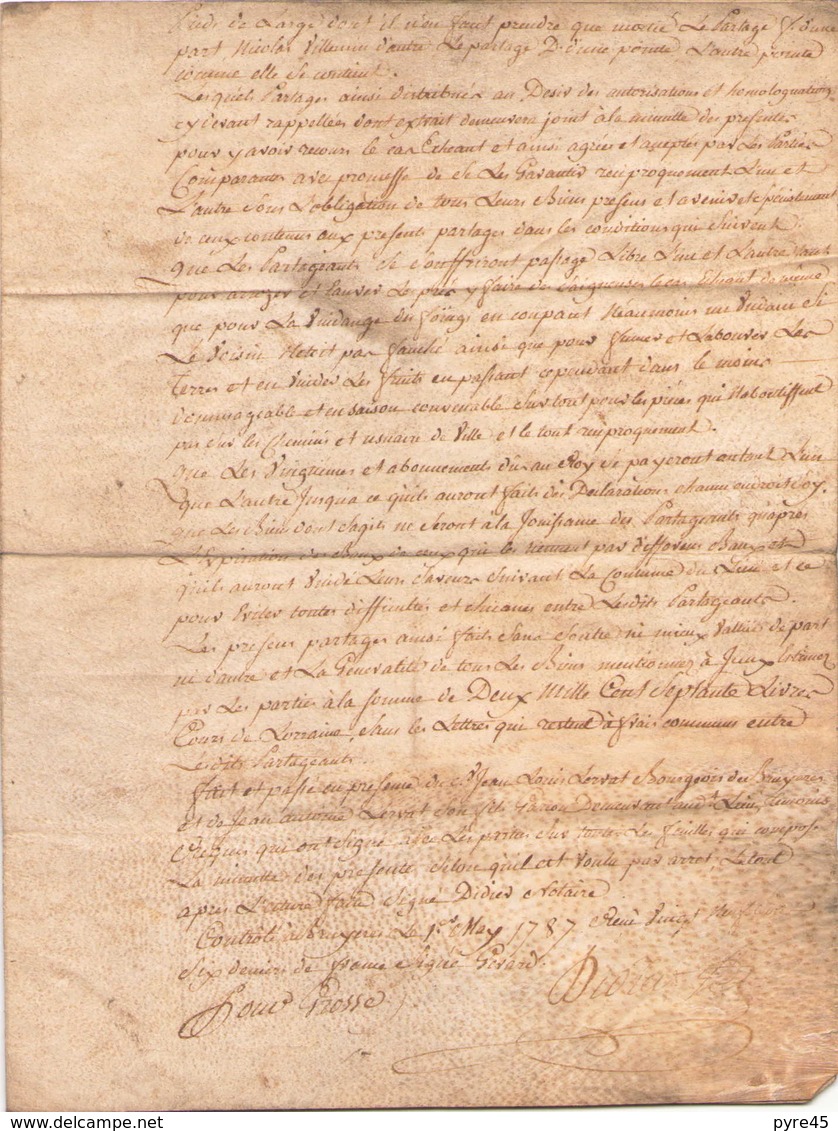 Pieds de Large dont il n'en faut prendre que moitié Le Partage d'une
part Nicolas Villemin d'autre Le partage D. d'une pointe L'autre pointe
comme elle se contient.
Lesquels Partages ainsi distribués au Desir des autorisations et homologuations
cy devant rappellées dont extrait demeurera joint à la minutte des presentes
pour y avoir recours le cas Echeant et ainsi agréés et acceptés par Les Parties
Comparantes avec promesse de se Les Garantir reciproquement L'une et
L'autre sous L'obligation de tous Leurs Biens presens et avenir et specialement
de ceux contenus aux presents partages dans les conditions qui suivent.
Que Les Partageants se souffriront passage Libre L'un et L'autre tant
pour arozer et sauver Le prés y faire des saigneures le cas Echeant de même
que pour La Vuidange du foings en coupant Neanmoins une Vudance Si
Le Voisin N'etoit pas fauché ainsi que pour fumer et Labourer Les
Terres et en Vuider Les fruits en passant cependant dans le moins
dommageable et en saison convenable sur tout pour les pièces qui N'aboutissent
pas sur les Chemins et usuaire de Ville et le tout reciproquement.
Que Les Vingtiemes et abonnements dus au Roy se payeront autant L'un
que L'autre Jusqu'a ce qu'ils auront faits des Declarations et
que Les Biens dont s'agits ne seront à la Jouissance des Partageants qu'après
L'Expiration des Baux de ceux qui les tiennent par differens Baux et
qu'ils auront Vuidé Leurs Saveurs suivant La Coutume du Lieu et ce
pour Eviter toutes difficultés et chicanes entre Lesdits Partageants.
Les presens partages ainsi faits sans soutre ni mieux Vallue de part
ni d'autre et La Generalité de tous Les Biens mentionnez à Jceux Estimez
par Les parties à la somme de Deux Mille Cent Septante Livres
Cours de Lorraine, sans les Lettres qui restent à frais communs entre
Lesdits Partageants.
fait et passé en presence du Sr. Jean Louis Lervat Bourgeois de Bruyeres
et de Jean Antoine Lervat Son fils Garçon Demeurant audt. Lieu temoins
Requis qui ont signé avec Les parties sur toutes Les feuilles qui compose
La minutte des presente selon qu'il est voulu par arret Le tout
après Lecture faite Signé Didier Notaire
Controlé à Bruyeres Le 1er. May 1787 Reçu Vingt
six deniers de france Signé Gerard.
Pour Grosse Didier

delcampe.net
pyre45